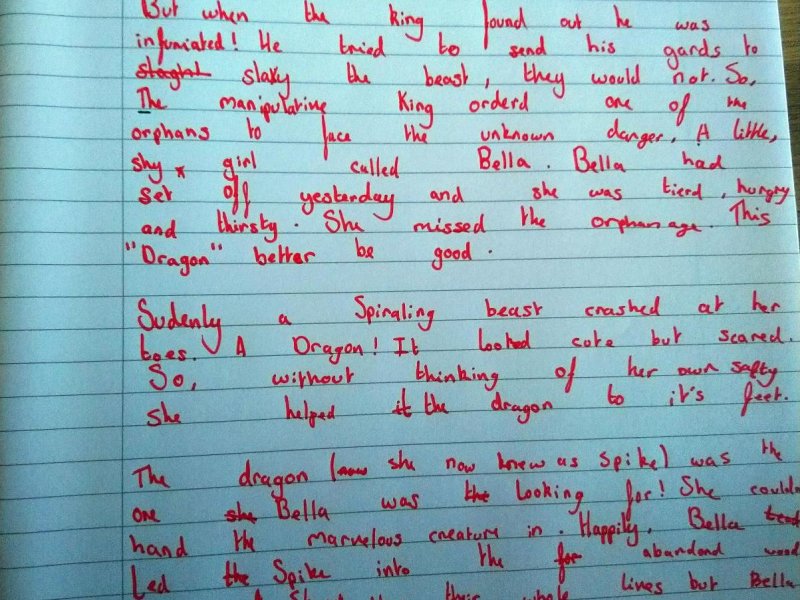 But when the king found out he was
infuriated! He tried to send his gards to
slaky the beast, they would not. So,
The manipulative King orderd one of the
orphans to face the unknown danger. A little,
shy girl called Bella. Bella had
set off yesterday and she was tierd, hungry
and thirsty. She missed the orphanage. This
"Dragon" better be good.
Sudenly a Spiraling beast crashed at her
toes. A Dragon! It looked cute but scared.
So, without thinking of her own safty
she helped it the dragon to it's feet.
The dragon (now she now knew as Spike) was the
one she Bella was the looking for! She couldn
hand the marvelous creature in. Happily, Bella
Led the Spike into the for abandond wood
their whole lives but Bella